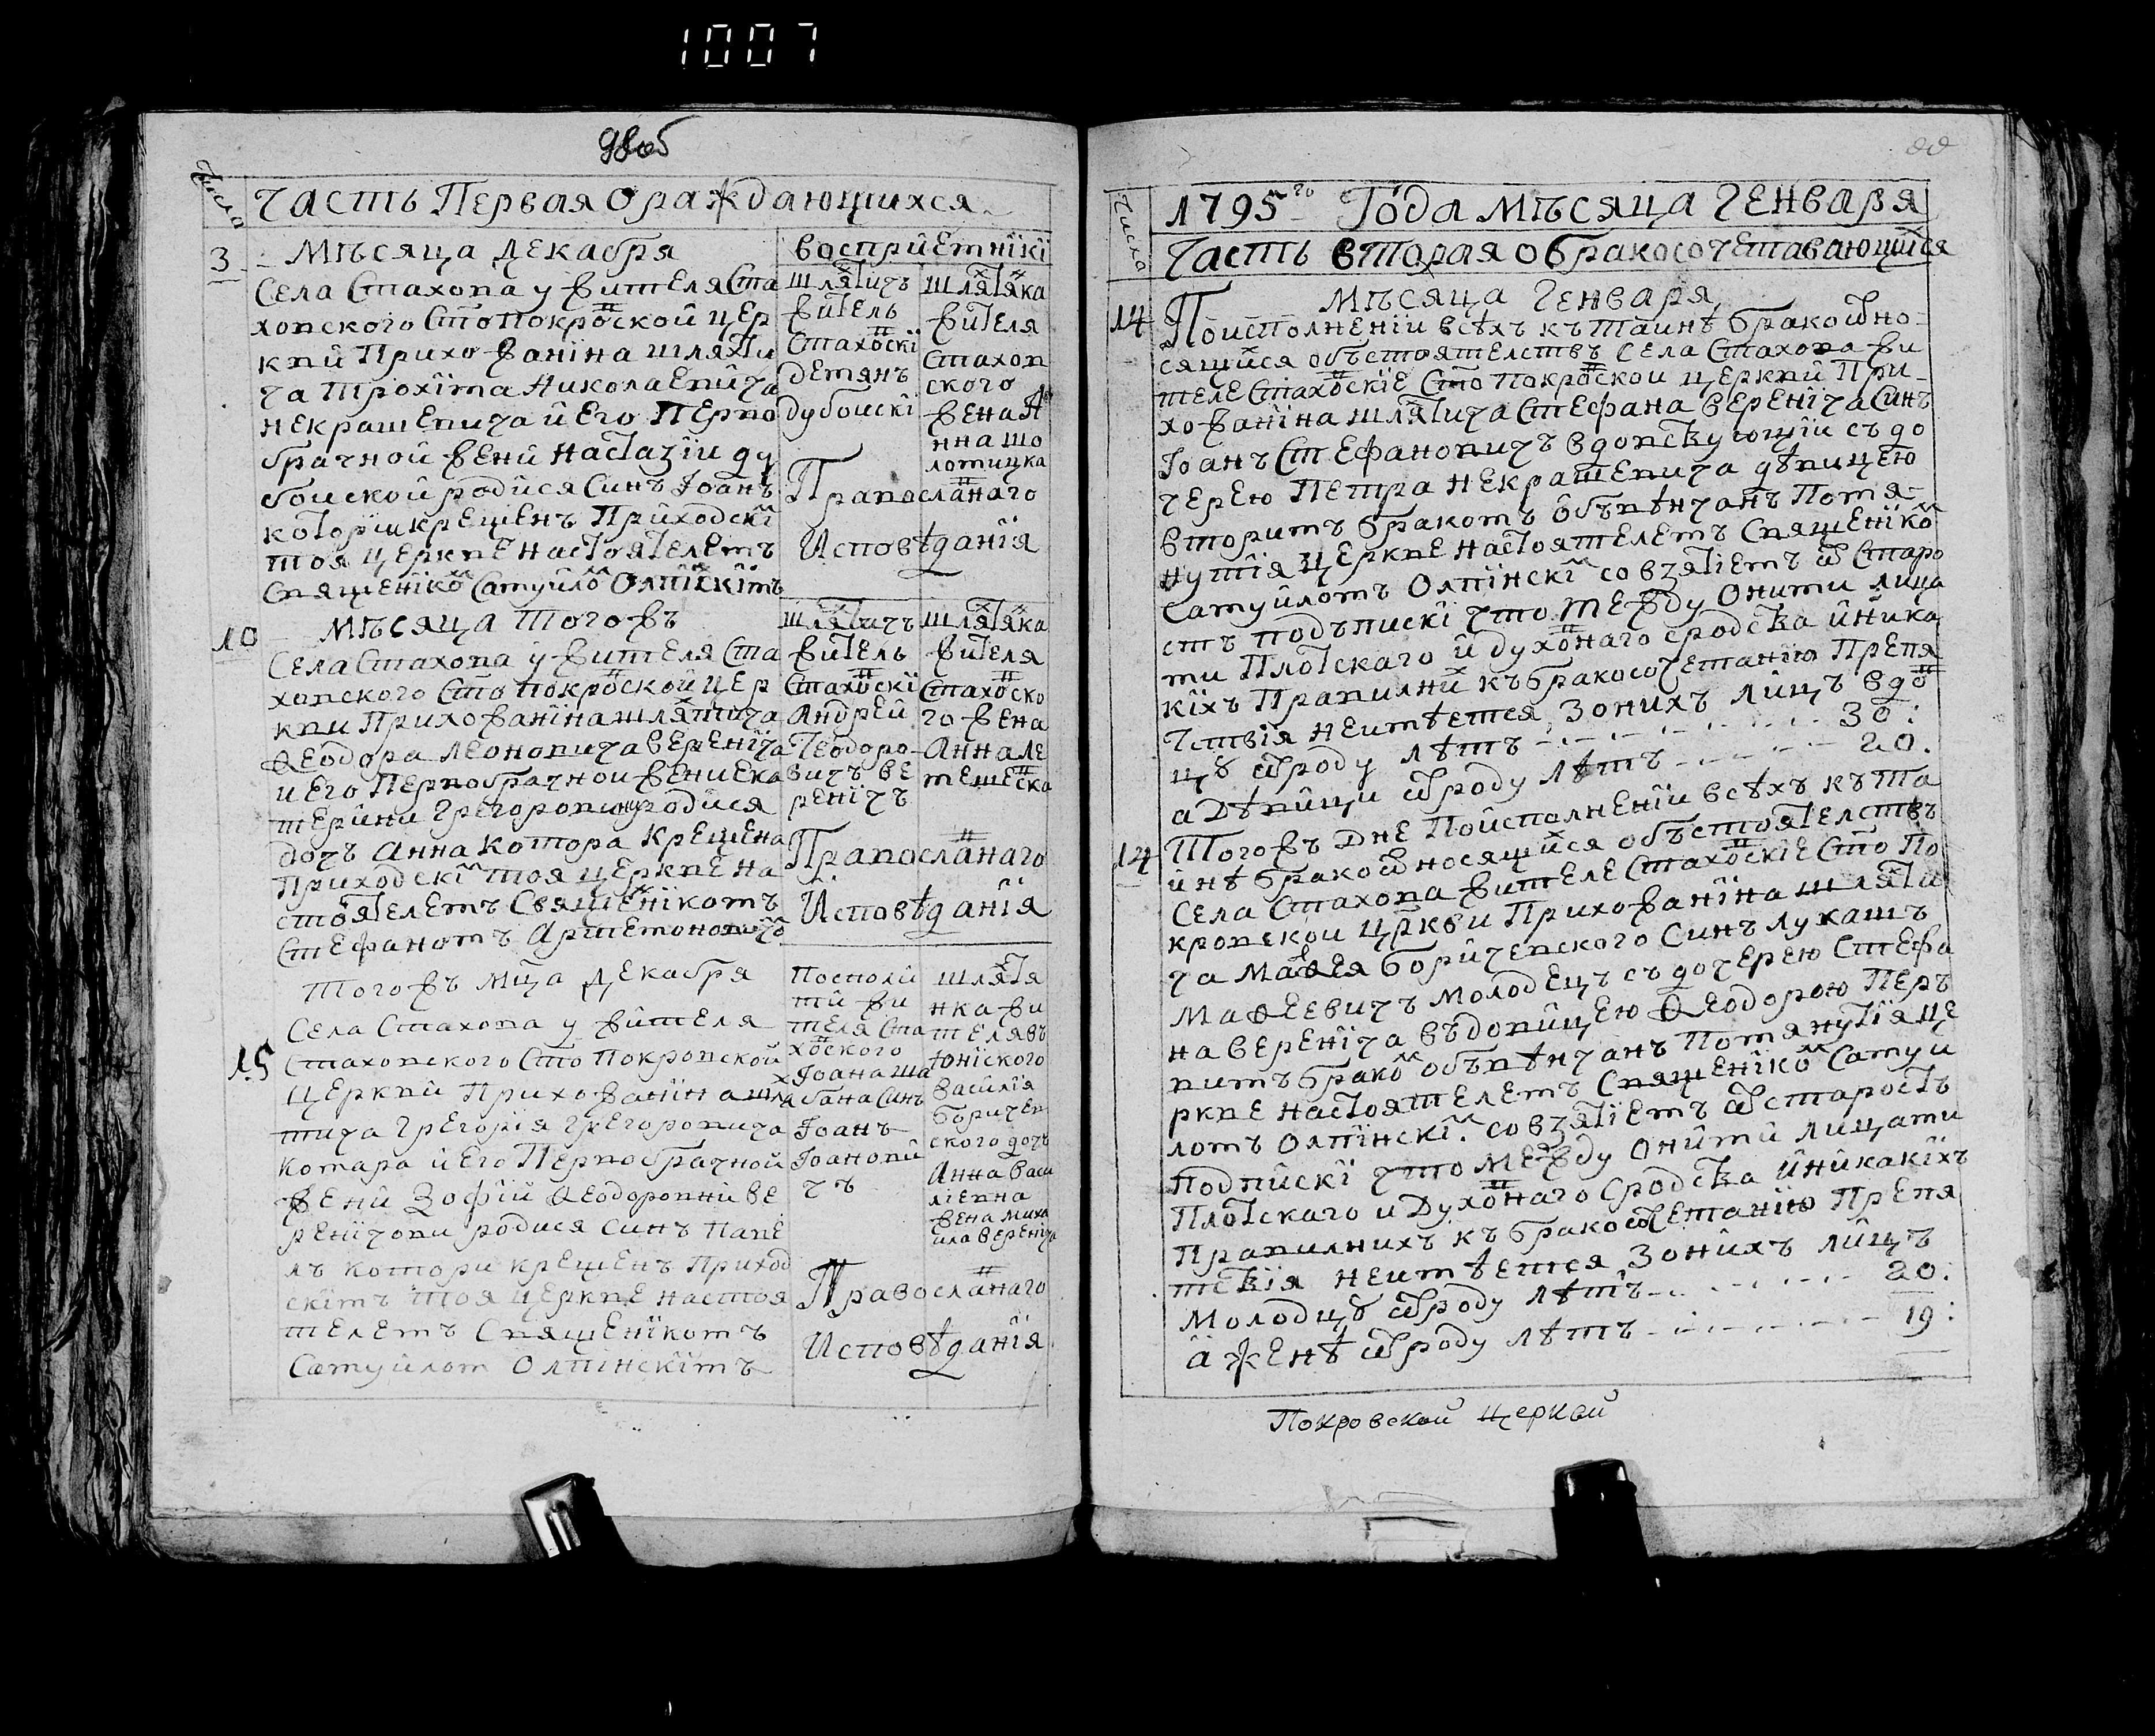 1007
98об
Числа
Часть Первая О раждающихся
3
Мѣсяца Декабря
Села Стахова у жителя Ста
ховского Сто Покровской цер
кви Прихожанїна шляхти
ча Трохїма Николаевича
Некрашевича й Его Перво
брачной жени Настазїи Ду
бойской родися Синъ Іоанъ
которїи крещенъ Приходскї
тоя Церкве настоятелемъ
Священїко Самуйло Олпїскїмъ
воспрїемнїкї
шляхтичъ
житель
Стаховскї
Демянъ
Дубоискї
шляхтянка
жителя
Стахов
ского
жена А
нна Шо
ломицка
Православнаго
Исповѣданїя
10
Мѣсяца Тогожъ
Села Стахова у жителя Ста
ховского Сто Покровской цер
кви Прихожанїна шляхтича
Ѳеодора Леоновича Веренїча
и Его Первобрачнои жени Ека
терини Грегоровни родися
дочъ Анна котора Крещена
Приходскї тоя церкве на
стоятелемъ Священїкомъ
Стефаномъ Аршемоновичо
шляхтичъ
житель
Стаховскї
Андрей
Теодоро
вичъ Ве
ренїчъ
шляхтянка
жителя
Стаховско
го жена
Анна Ле
мешевска
Православнаго
Исповѣданїя
15
Тогожъ мца Декабря
Села Стахова у жителя
Стаховского Сто Покровской
Церквй Прихожанїна шля
тича Грегорїя Грегоровича
Комара й Его Первобрачной
женй Зофїй Ѳеодоровнй Ве
ренїчови родися синъ Паве
лъ котори крещенъ Приход
скїмъ тоя церкве настоя
телемъ Священїкомъ
Самуйлом Олпїнскїмъ
Посполи
тй жи
теля Ста
ховского
Іоана Ша
бана Синъ
Іоанъ
Іоановй
чъ
шляхтя
нка жи
теля въ
Василїя
Боричев
ского дочъ
Анна Васи
лїевна
жена Миха
ила Веренїча
Православнаго
Исповѣданїя
Числа
1795го Года Мѣсяца Генваря
Часть вторая о бракосочетавающихся
14
Мѣсяца Генваря
По исполненїи всѣхъ къ таинѣ брака отно
сящихся обьстоятелствъ Села Стахова жи
теле Стаховскїе Сто Покровскои церквй При
хожанїна шляхтича Стефана Веренїча Синъ
Іоанъ Стефановичъ вдовствующїи съ до
черею Петра Некрашевича дѣвицею
вторимъ бракомъ обьвѣнчанъ Помя
нутїя Церкве настоятелемъ Священїко
Самуйломъ Олпїнскї со взятїемъ от старо
стъ подьпискї что между оними лица
ми Плотскаго й духовнаго сродства й ника
кїхъ Правилнїх къ бракосочетанїю Препя
тствїя неимѣется, З онихъ лйцъ вдов
цу от роду лѣтъ 30:
а дѣвйци от роду лѣтъ 20.
14
Тогожъ Дне По исполненїи всѣхъ къ та
инѣ брака относящйхся обьстоятелствъ
Села Стахова жителе Стаховскїе Сто По
кровскои Цркви Прихожанїна шляхти
ча Маѳея Боричевского Синъ Лукашъ
Маѳеевичъ молодецъ съ дочерею Стефа
на Веренїча въдовйцею Ѳеодорою Пер
вимъ брако обьвѣнчанъ Помянутїя це
ркве настоятелемъ Священїко Самуи
ломъ Олпїнскї со взятїемъ от старость
подпйскї что между онймй лицами
Плотскаго и Духовнаго сродства й нйкакїхъ
Правилнихъ къ бракосочетанїю Препя
тствїя неимѣется, З онйхъ лйцъ
молодцу от роду лѣтъ 20:
а женѣ от роду лѣтъ 19:
Покровской церкви